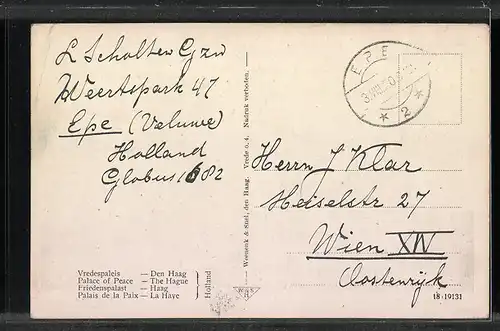 L Scholten Gzn
Weertspark 47
Epe (Veluwe)
Holland
Globus 1682
Vredespaleis — Den Haag
Palace of Peace — The Hague
Friedenspalast — Haag
Palais de la Paix — La Haye
Holland
Weenenk & Snel, den Haag. Vrede o. 4. Nadruk verboden.
EPE
2
Herrn J Klar
Heiselstr 27
Wien XIV
Oostenryk
18-19131